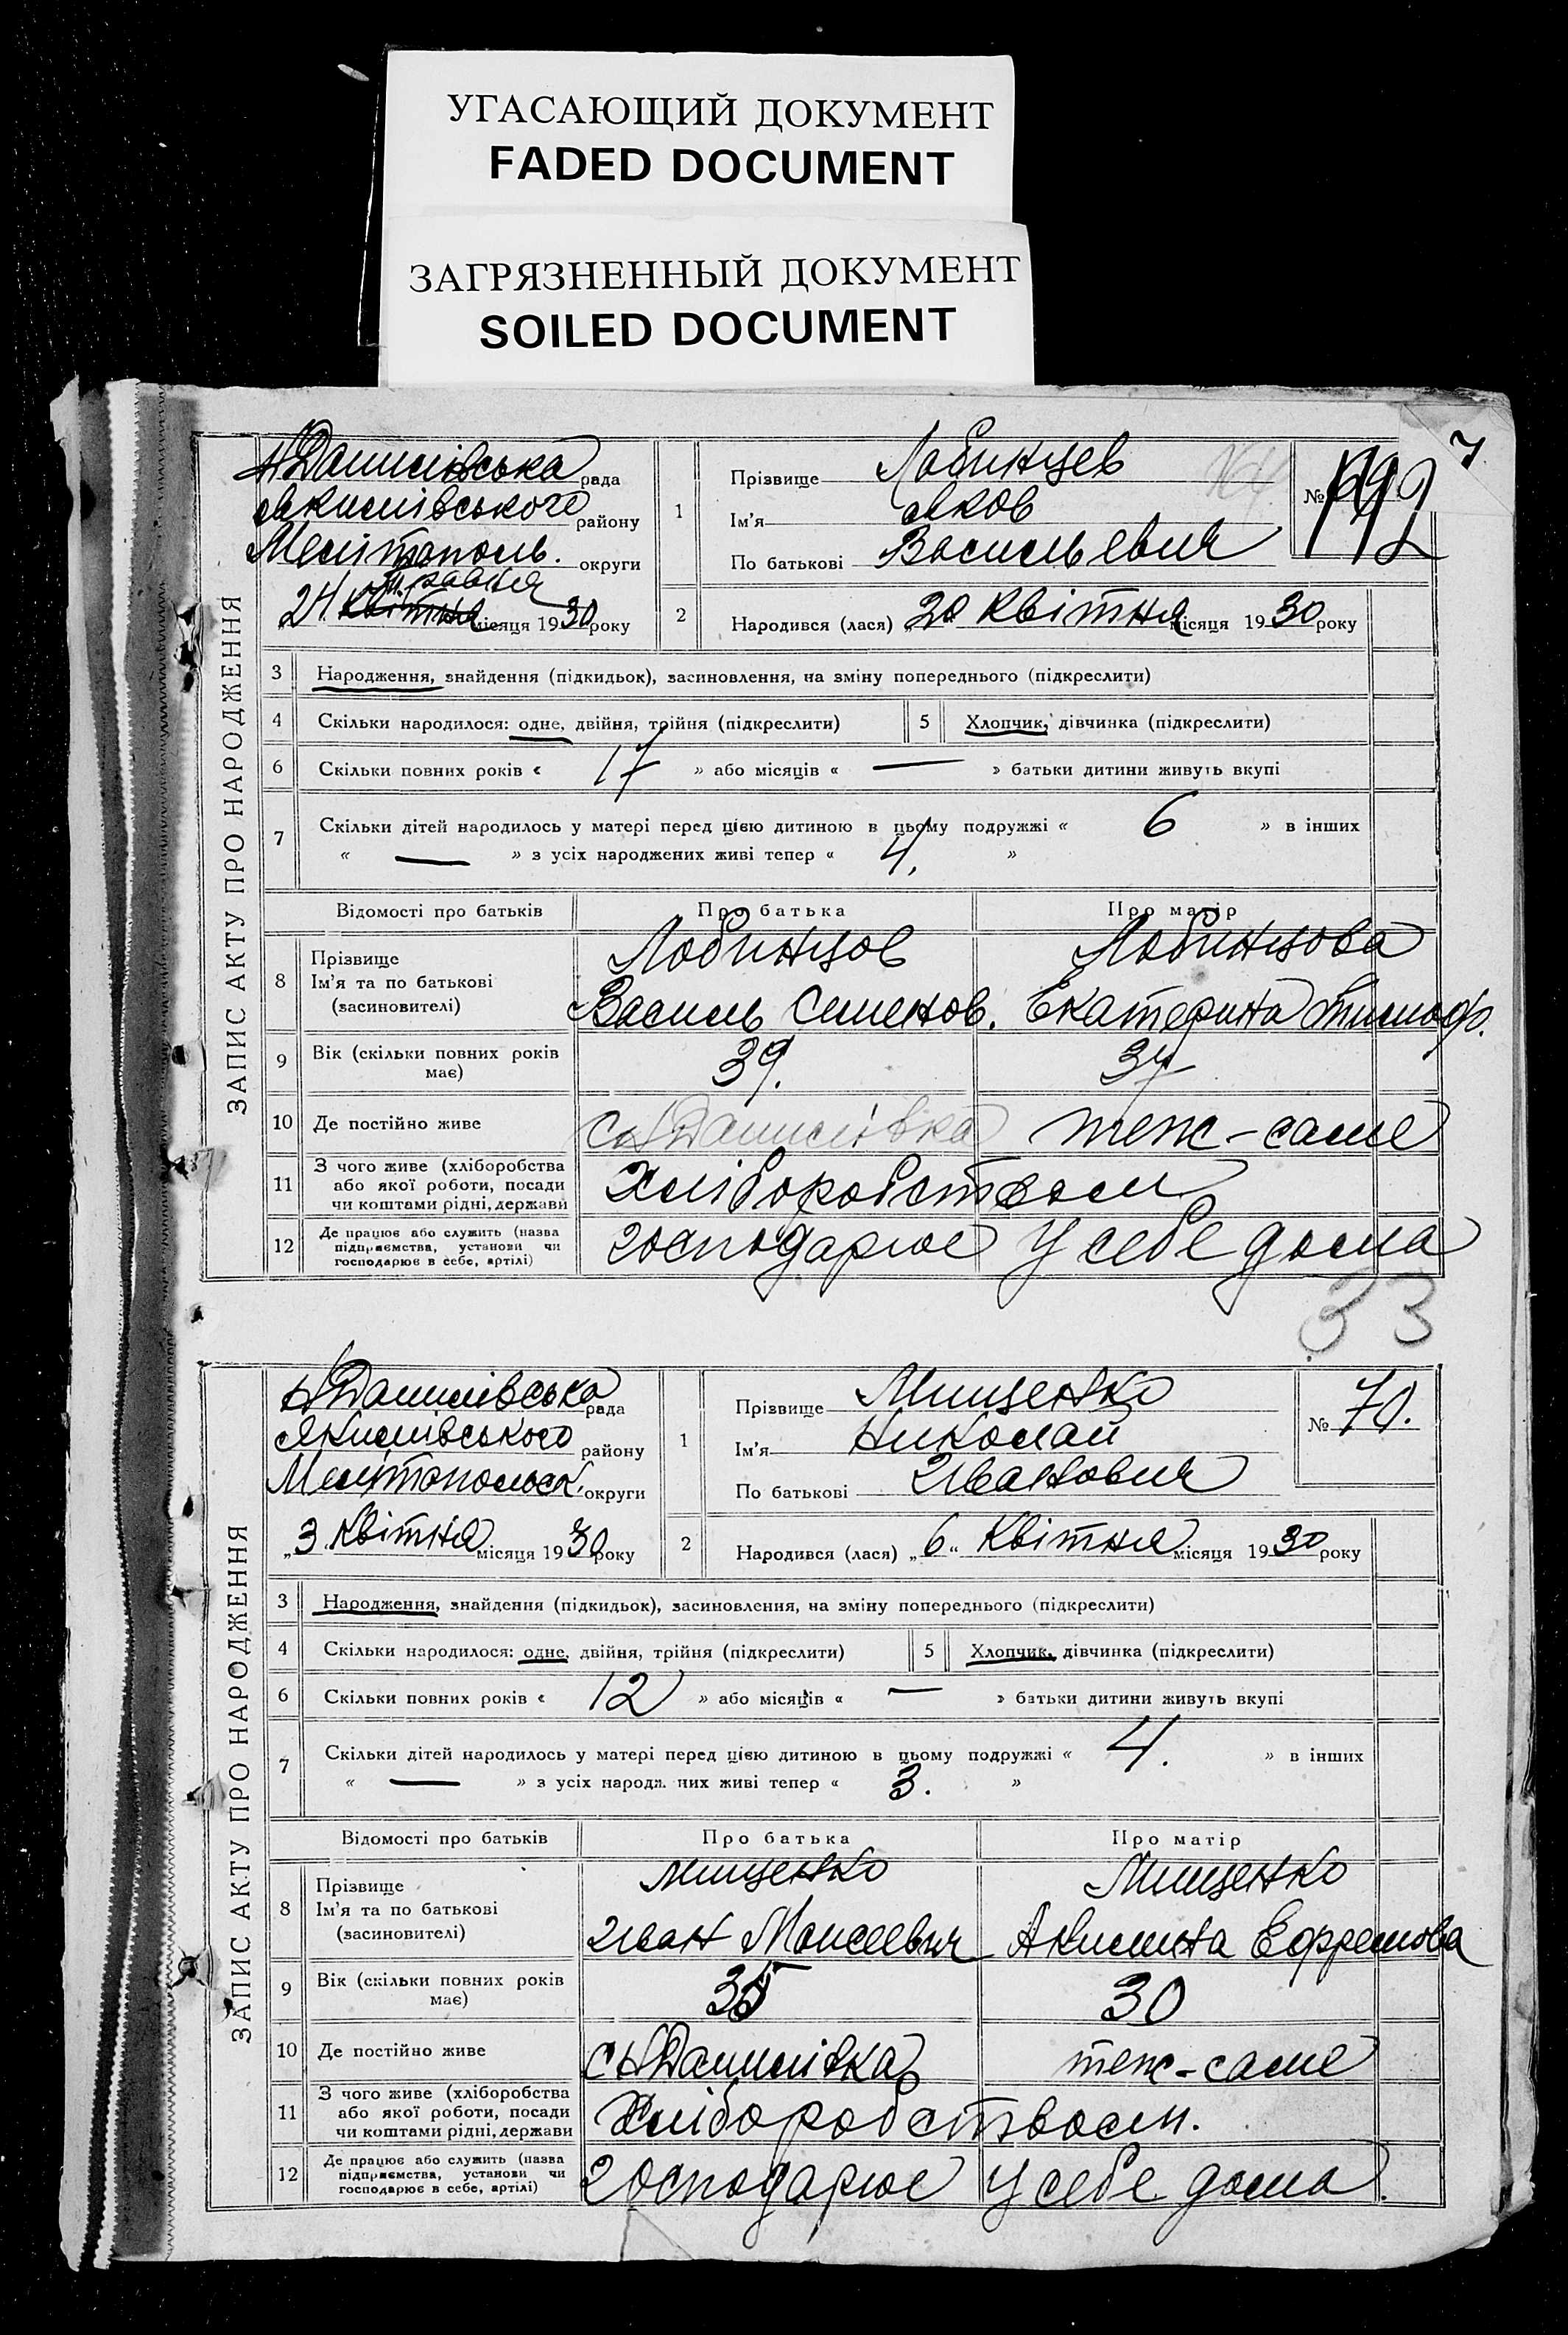 УГАСАЮЩИЙ ДОКУМЕНТ
FADED DOCUMENT
ЗАГРЯЗНЕННЫЙ ДОКУМЕНТ
SOILED DOCUMENT
7
ЗАПИС АКТУ ПРО НАРОДЖЕННЯ
Н Данилівська рада
Якимівського району
Мелітополь. округи
травня
24 квітня місяця 1930 року
1
Прізвище Лобинцев
Ім'я Яков
По батькові Васильевич
№
2
Народився (лася) „20 Квітня місяця 1930 року
3 Народження, знайдення (підкидьок), засиновлення, на зміну попереднього (підкреслити)
4 Скільки народилося: одне, двійня, трійня (підкреслити) 5 Хлопчик, дівчинка (підкреслити)
6 Скільки повних років « 17 » або місяців « — » батьки дитини живуть вкупі
7 Скільки дітей народилось у матері перед цією дитиною в цьому подружжі « 6 » в інших
« — » з усіх народжених живі тепер « 4. »
Відомості про батьків Про батька Про матір
8 Прізвище Лобинцов Лобинцова
Ім'я та по батькові
(засиновителі) Василь Семенов. Екатерина Тимоф.
9 Вік (скільки повних років має) 39. 37
10 Де постійно живе с Н Данилівка теж-саме
11 З чого живе (хліборобства
або якої роботи, посади
чи коштами рідні, держави Хліборобством
12 Де працює або служить (назва
підприємства, установи чи
господарює в себе, артілі) господарює у себе дома
33
ЗАПИС АКТУ ПРО НАРОДЖЕННЯ
Н Данилівська рада
Якимівського району
Мелітопольськ. округи
„3 Квітня місяця 1930 року
1
Прізвище Мищенко
Ім'я Николай
По батькові Иванович
№ 70.
2
Народився (лася) „6“ Квітня місяця 1930 року
3 Народження, знайдення (підкидьок), засиновлення, на зміну попереднього (підкреслити)
4 Скільки народилося: одне, двійня, трійня (підкреслити) 5 Хлопчик, дівчинка (підкреслити)
6 Скільки повних років « 12 » або місяців « — » батьки дитини живуть вкупі
7 Скільки дітей народилось у матері перед цією дитиною в цьому подружжі « 4. » в інших
« — » з усіх народж. них живі тепер « 3. »
Відомості про батьків Про батька Про матір
8 Прізвище Мищенко Мищенко
Ім'я та по батькові
(засиновителі) Иван Моисеевич Акилина Ефремова
9 Вік (скільки повних років має) 35 30
10 Де постійно живе с Н Данилівка теж-саме
11 З чого живе (хліборобства
або якої роботи, посади
чи коштами рідні, держави Хліборобством.
12 Де працює або служить (назва
підприємства, установи чи
господарює в себе, артілі) господарює у себе дома.